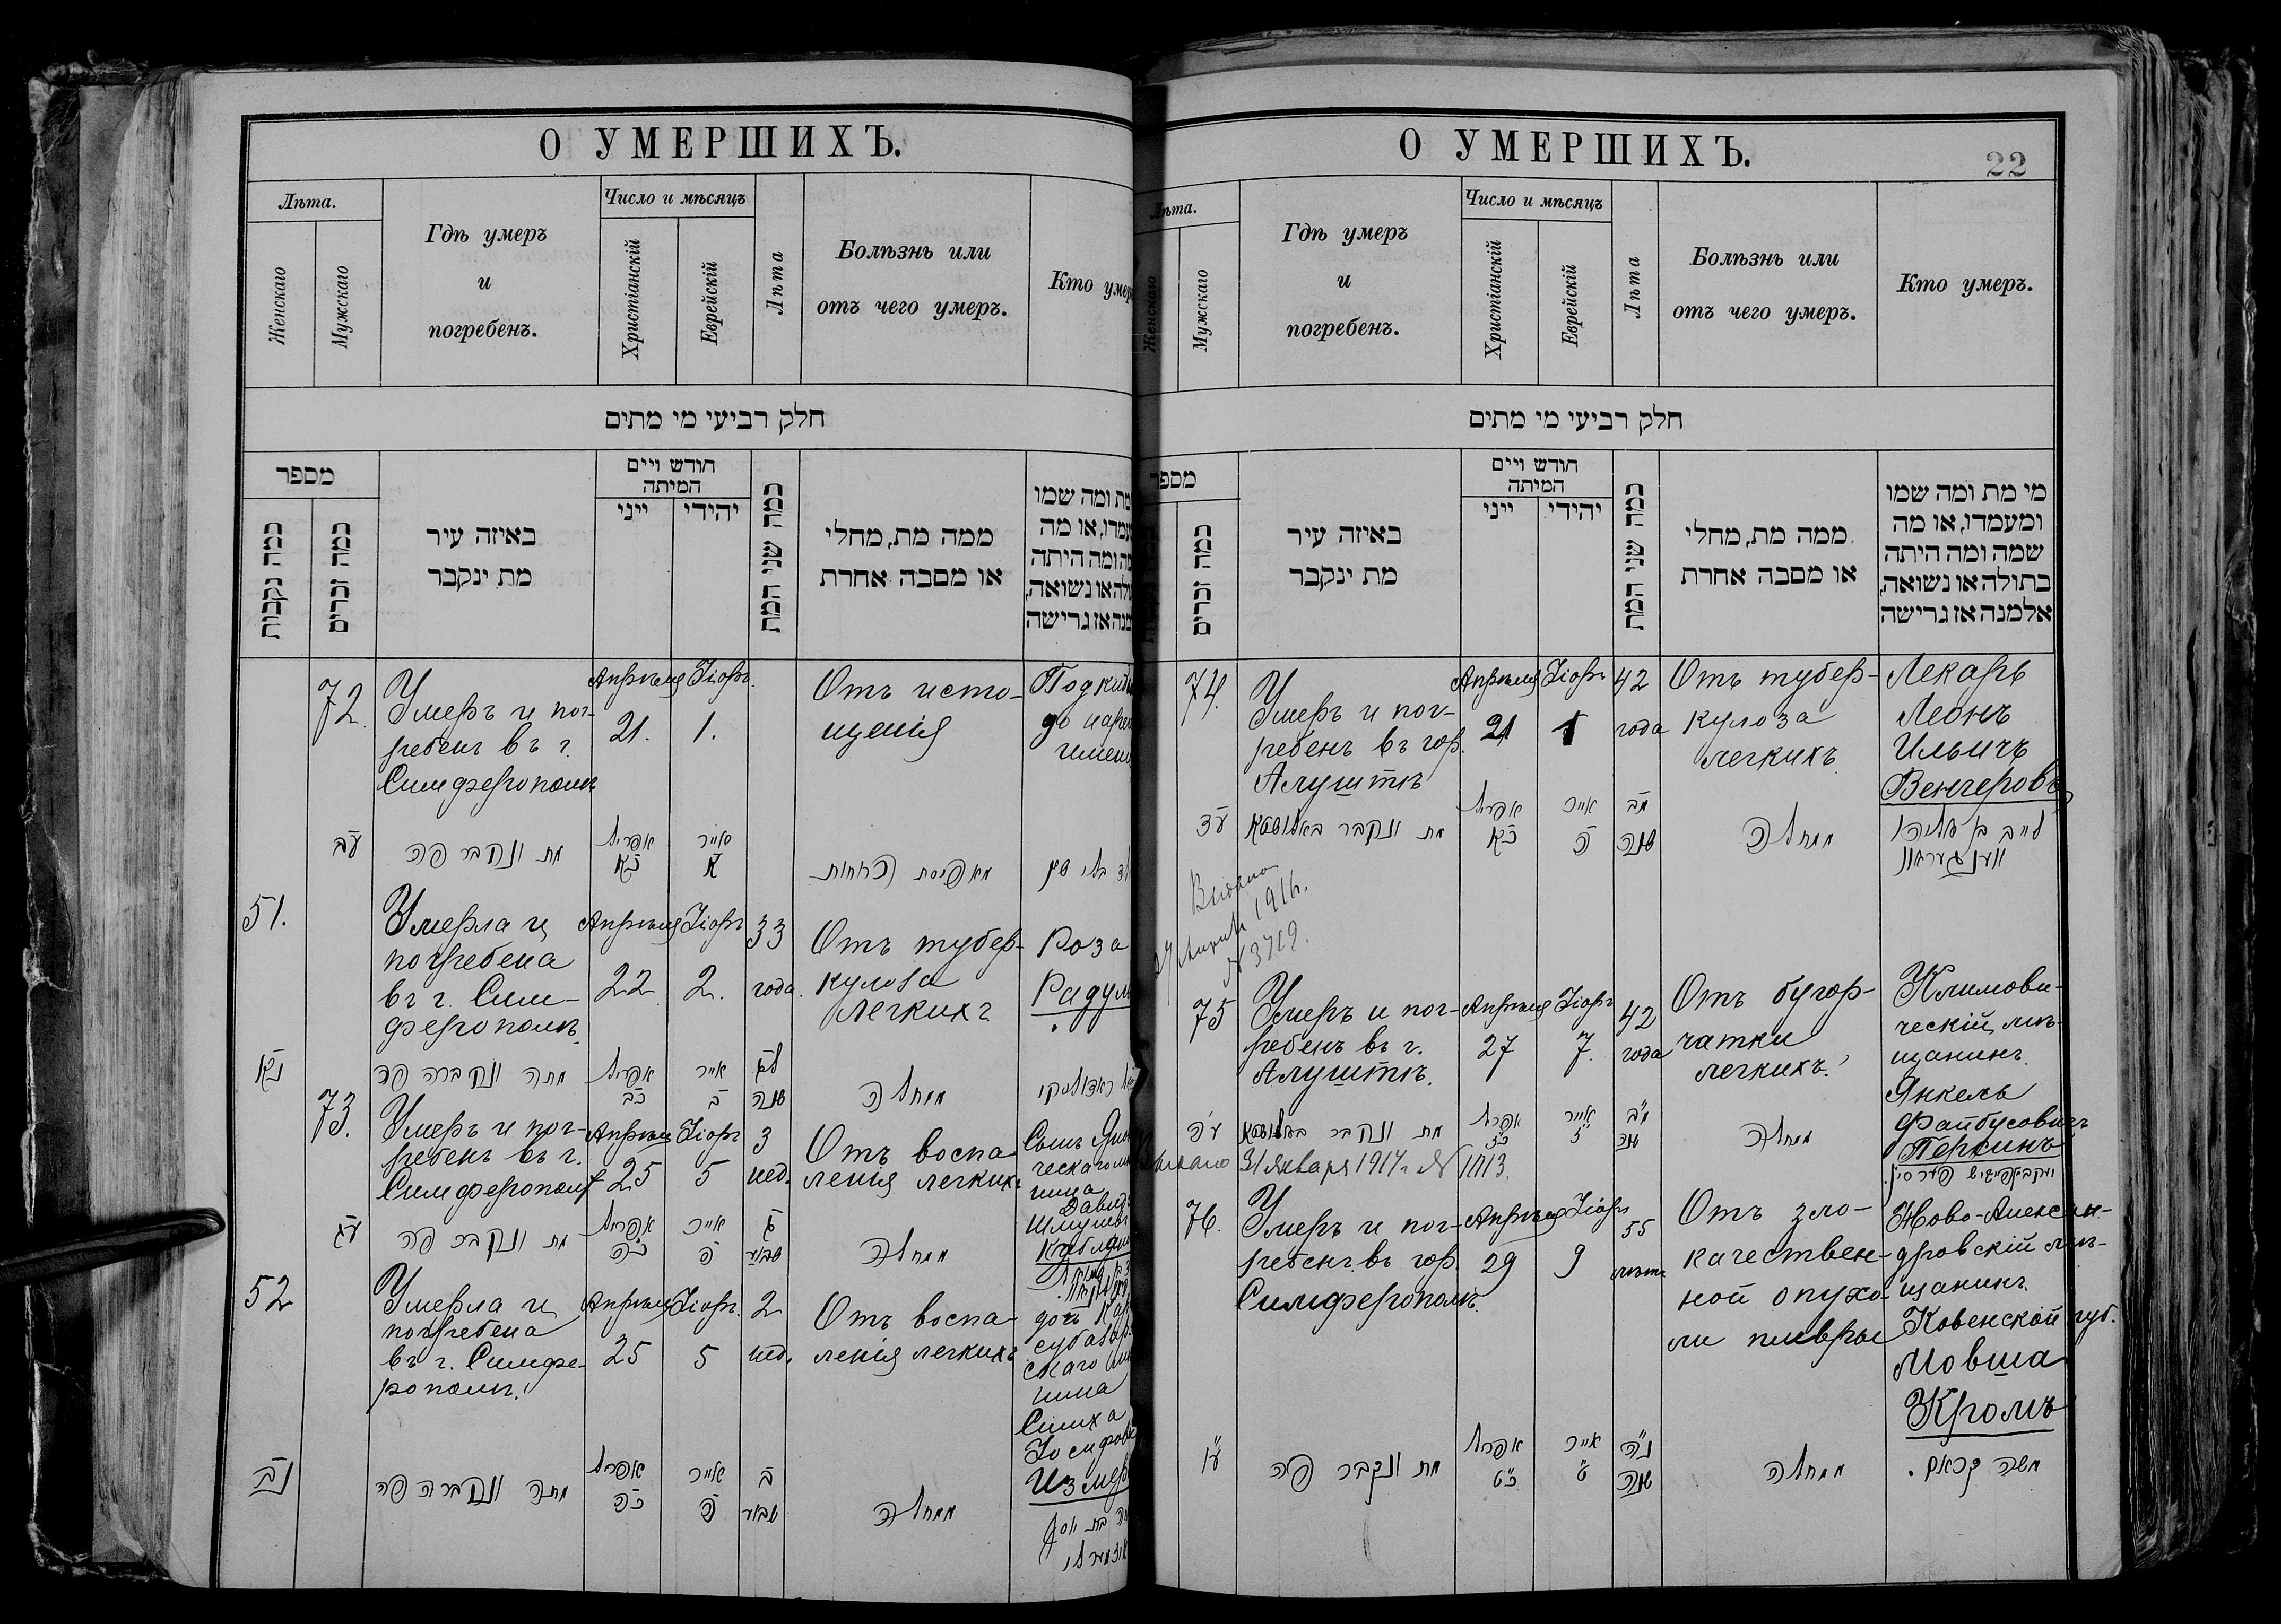 О УМЕРШИХЪ.
Лѣта.
Женскаго
Мужскаго
Гдѣ умеръ
и
погребенъ.
Число и мѣсяцъ
Христіанскій
Еврейскій
Лѣта
Болѣзнь или
отъ чего умеръ.
Кто умер
חלק רביעי מי מתים
מספר
כמה נקבות
כמה זכרים
באיזה עיר
מת ינקבר
חודש ויים
המיתה
ייני
יהידי
כמה שני המת
ממה מת, מחלי
או מסבה אחרת
מת ומה שמו
עמדו, או מה
ה ומה היתה
לה או נשואה,
מנה אז גרישה
72.
Умеръ и пог-
ребенъ въ г.
Симферополѣ
Апрѣля
21.
Іюръ.
1.
Отъ исто-
щенія
Подки
עב
מת ונקבר פה
אפריל
כא
אייר
א
51.
Умерла и
погребена
въ г. Сим-
ферополѣ
Апрѣля
22
Іюръ
2.
33
года.
Отъ тубер-
кулоза
легкихъ
Роза
Радул
נא
מתה ונקברה פה
אפריל
כב
אייר
ב
לג
שנה
ממחלה
73.
Умеръ и пог-
ребенъ въ г.
Симферополѣ
Апрѣля
25
Іюръ
5
3
нед.
Отъ воспа-
ленія легкихъ
Сынъ Ян
ческаго
нина
Давид
Шмулев
עג
מת ונקבר פה
אפריל
כה
אייר
ה
ג
שבוע
ממחלה
52
Умерла и
погребена
въ г. Симфе-
рополѣ.
Апрѣля
25
Іюръ.
5
2
нед.
Отъ воспа-
ленія легкихъ
дочь Кар
субазар
скаго
нина
Симха
Іосифов
Измер
נב
מתה ונקברה פה
אפריל
כה
אייר
ה
ב
שבוע
ממחלה
בת יוסף
О УМЕРШИХЪ.
22
Лѣта.
Женскаго
Мужскаго
Гдѣ умеръ
и
погребенъ.
Число и мѣсяцъ
Христіанскій
Еврейскій
Лѣта
Болѣзнь или
отъ чего умеръ.
Кто умеръ.
חלק רביעי מי מתים
מספר
כמה זכרים
באיזה עיר
מת ינקבר
חודש ויים
המיתה
ייני
יהידי
כמה שני המת
ממה מת, מחלי
או מסבה אחרת
מי מת ומה שמו
ומעמדו, או מה
שמה ומה היתה
בתולה או נשואה,
אלמנה אז גרישה
74.
Умеръ и пог-
ребенъ въ гор.
Алуштѣ
Апрѣля
21
Іюръ
1
42
года
Отъ тубер-
кулоза
легкихъ
Лекарь
Леонъ
Ильичъ
Венгеровъ
עד
מת ונקבר באלושטא
אפריל
כא
אייר
מב
שנה
ממחלה
לייב בן אליהו
ווענגעראוו
Выдано
27 Апрѣля 1916 г.
№ 3719.
75
Умеръ и пог-
ребенъ въ г.
Алуштѣ.
Апрѣля
27
Іюръ
7.
42
года
Отъ бугор-
чатки
легкихъ.
Климови-
ческій мѣ-
щанинъ
Янкель
Файбусовичъ
Перкинъ
עה
מת ונקבר באלושטא
אפריל
כז
אייר
ז
מב
שנה
ממחלה
Выдано 31 Января 1917 г. №
76.
Умеръ и пог-
ребенъ въ гор.
Симферополѣ.
Апрѣля
29
Іюръ
9
55
лѣтъ
Отъ зло-
качествен-
ной опухо-
ли плевры
Ново-Алексан-
дровскій мѣ-
щанинъ
Ковенской губ.
Мовша
Кромъ
עו
מת ונקבר פה
אפריל
כט
אייר
ט
נה
שנה
ממחלה
משה קראם.